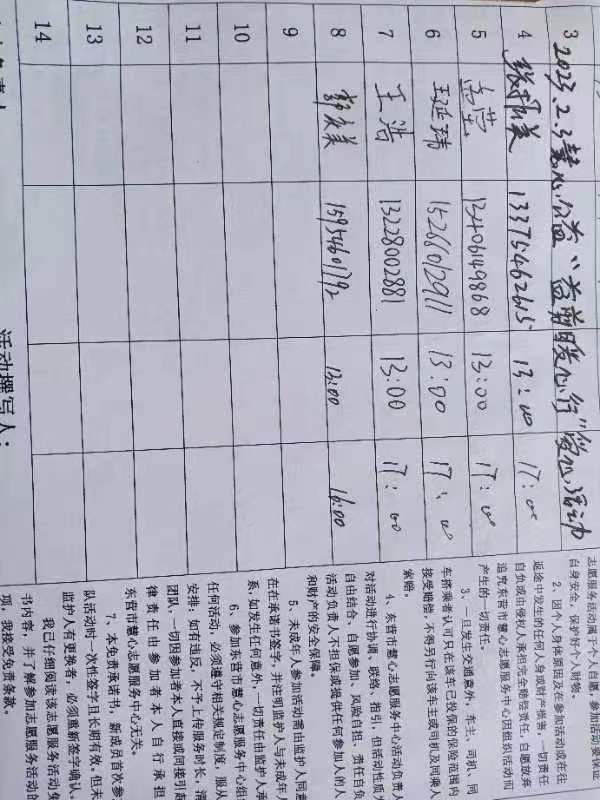 3 2023.2.3慧心公益"益剪暖心行"爱心活动
4 13375462615 13:00 17:00
5 13406149868 13:00 17:00
6 15266012911 13:00 17:00
7 王浩 13228002881 13:00 17:00
8 15954601792 13:00 16:00
9
10
11
12
13
14
活动撰写人：
志愿服务活动属于个人自愿，参加活动要保证
自身安全，保护好个人财物。
2、因个人身体原因及在参加活动或在往
返途中发生的任何人身或财产损害，一切责任
自负或由侵权人承担完全赔偿责任，自愿放弃
追究东营市慧心志愿服务中心因组织活动而
产生的一切责任。
3、一旦发生交通意外，车主、司机、同
车搭乘者认可只在该车已投保的保险范围内
接受赔偿，不得另行向该车主或司机及同乘人
索赔。
4、东营市慧心志愿服务中心活动负责人
对活动进行协调、联络、指引，但活动性质为
自由结合、自愿参加、风险自担、责任自负
活动负责人不担保或提供任何参加人的人
和财产的安全保障。
5、未成年人参加活动需由监护人同意
在在承诺书签字，并注明监护人与未成年人
系，如发生任何意外，一切责任由监护人承
6、参加东营市慧心志愿服务中心组
任何活动，必须遵守相关规定制度，服从
安排，如有违反，不予上传服务时长，清
团队，一切因参加者本人直接或间接引起
律责任由参加者本人自行承担
东营市慧心志愿服务中心无关。
7、本免责承诺书，新成员首次参
队活动时一次性签字且长期有效，但未
监护人有更换者，必须重新签字确认。
我已仔细阅读该志愿服务活动免
书内容，并了解参加志愿服务活动的
项，我接受免责条款。